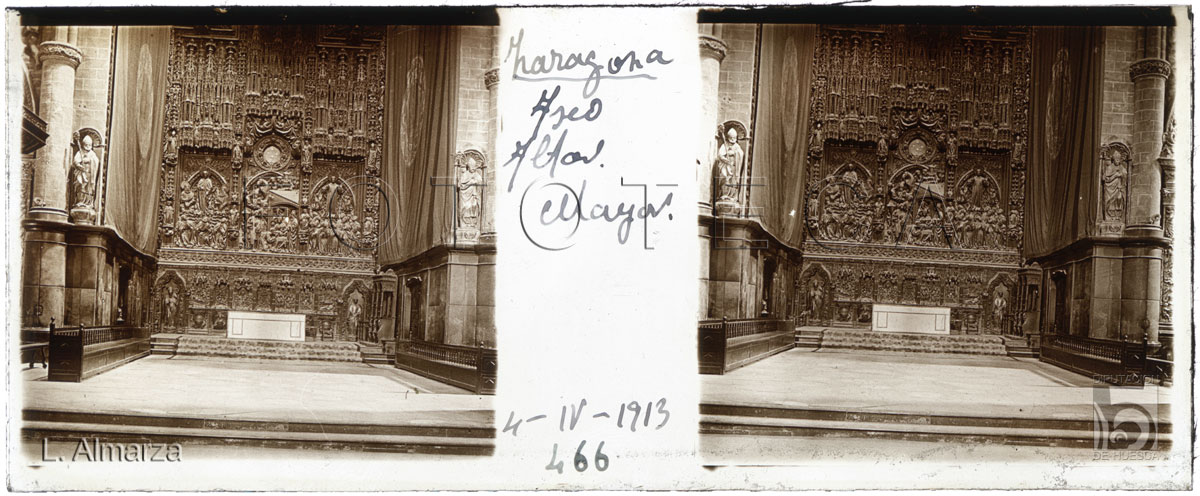 Zaragoza
Aseo
Altar.
Mayor.
FOTOTECA
4-IV-1913
466.
L. Almarza
DIPUTACIÓN
DE HUESCA